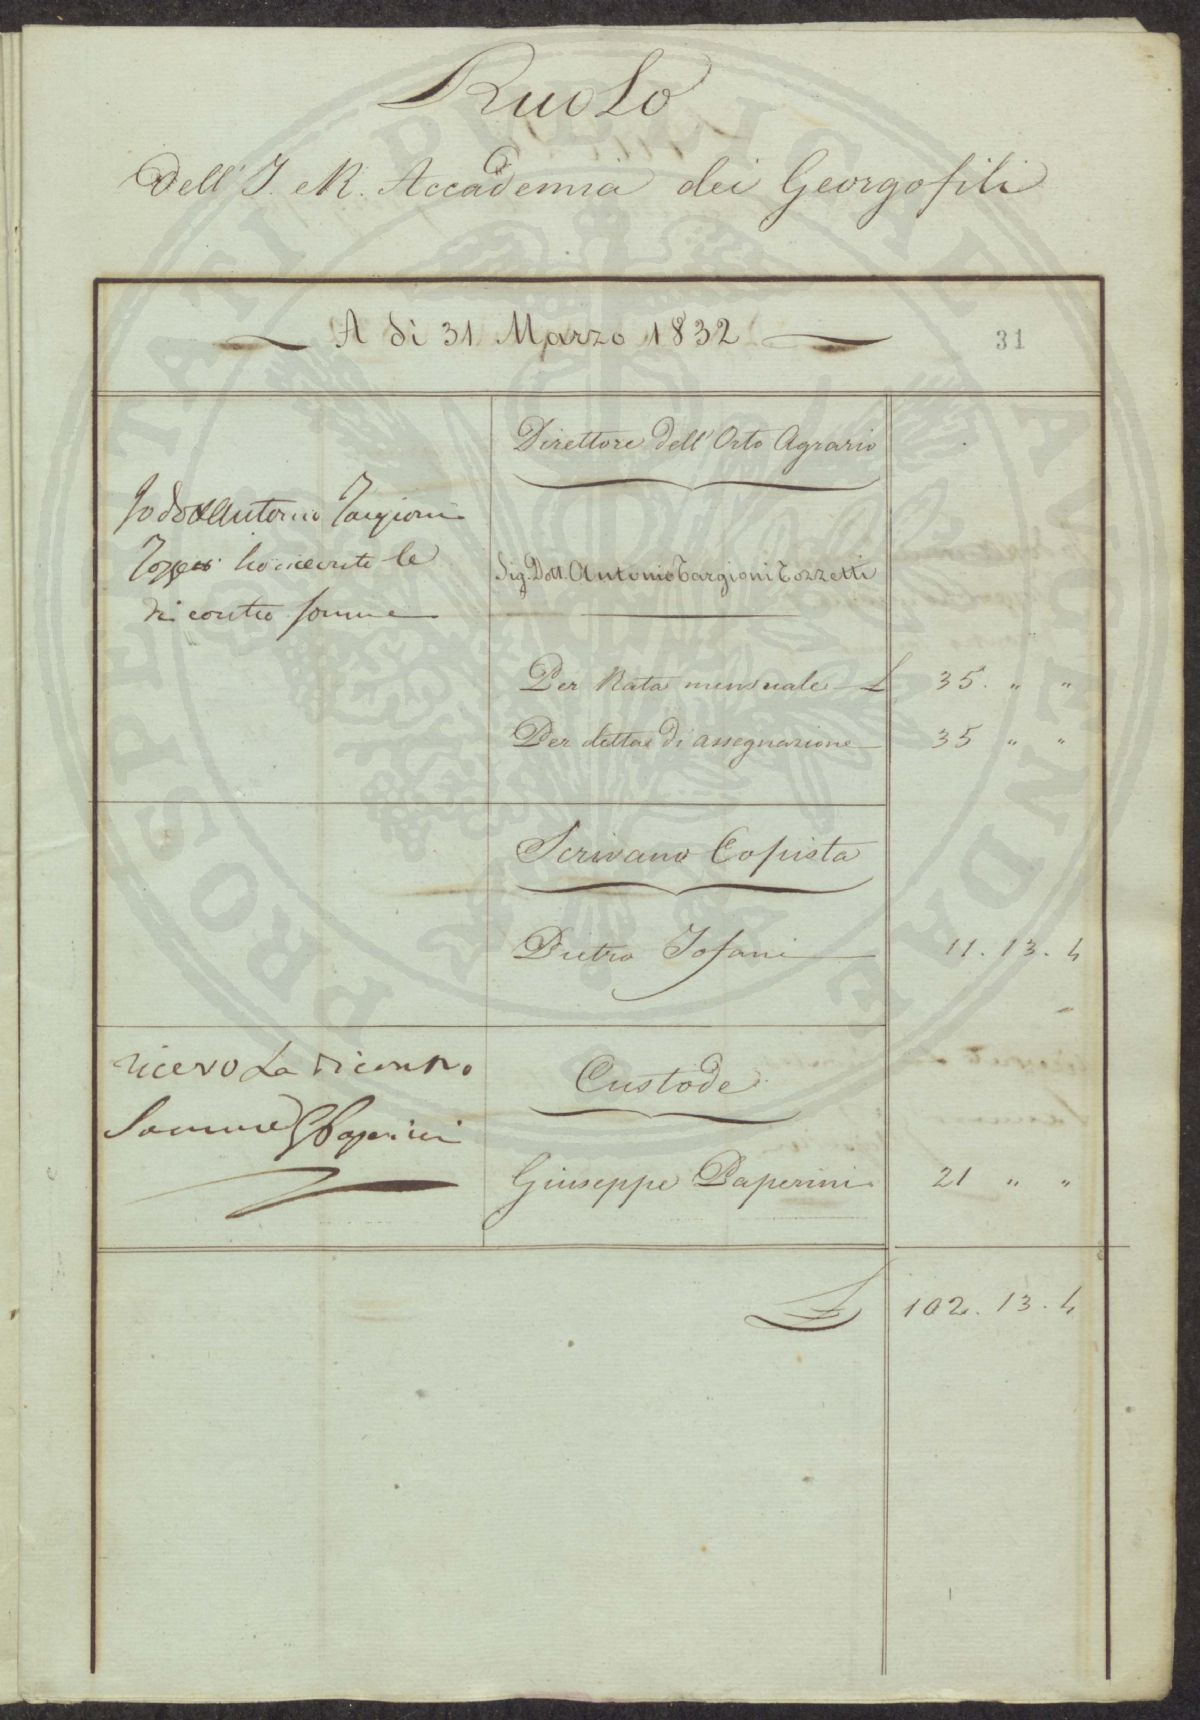 Ruolo
Dell' I. e R. Accademia dei Georgofili
A dì 31 Marzo 1832
31
Direttore dell' Orto Agrario
Io Dott Antonio Targioni
Tozzetti ho ricevuto le
di contro somme
Sig. Dott. Antonio Targioni Tozzetti
Per Rata mensuale £ 35. " "
Per detta di assegnazione 35 " "
Scrivano Copista
Pietro Tofani 11. 13. 4
ricevo La di contro
Somma G Paperini
Custode
Giuseppe Paperini 21 " "
£ 102. 13. 4
PROSPERITATI PUBLICAE AUGENDAE